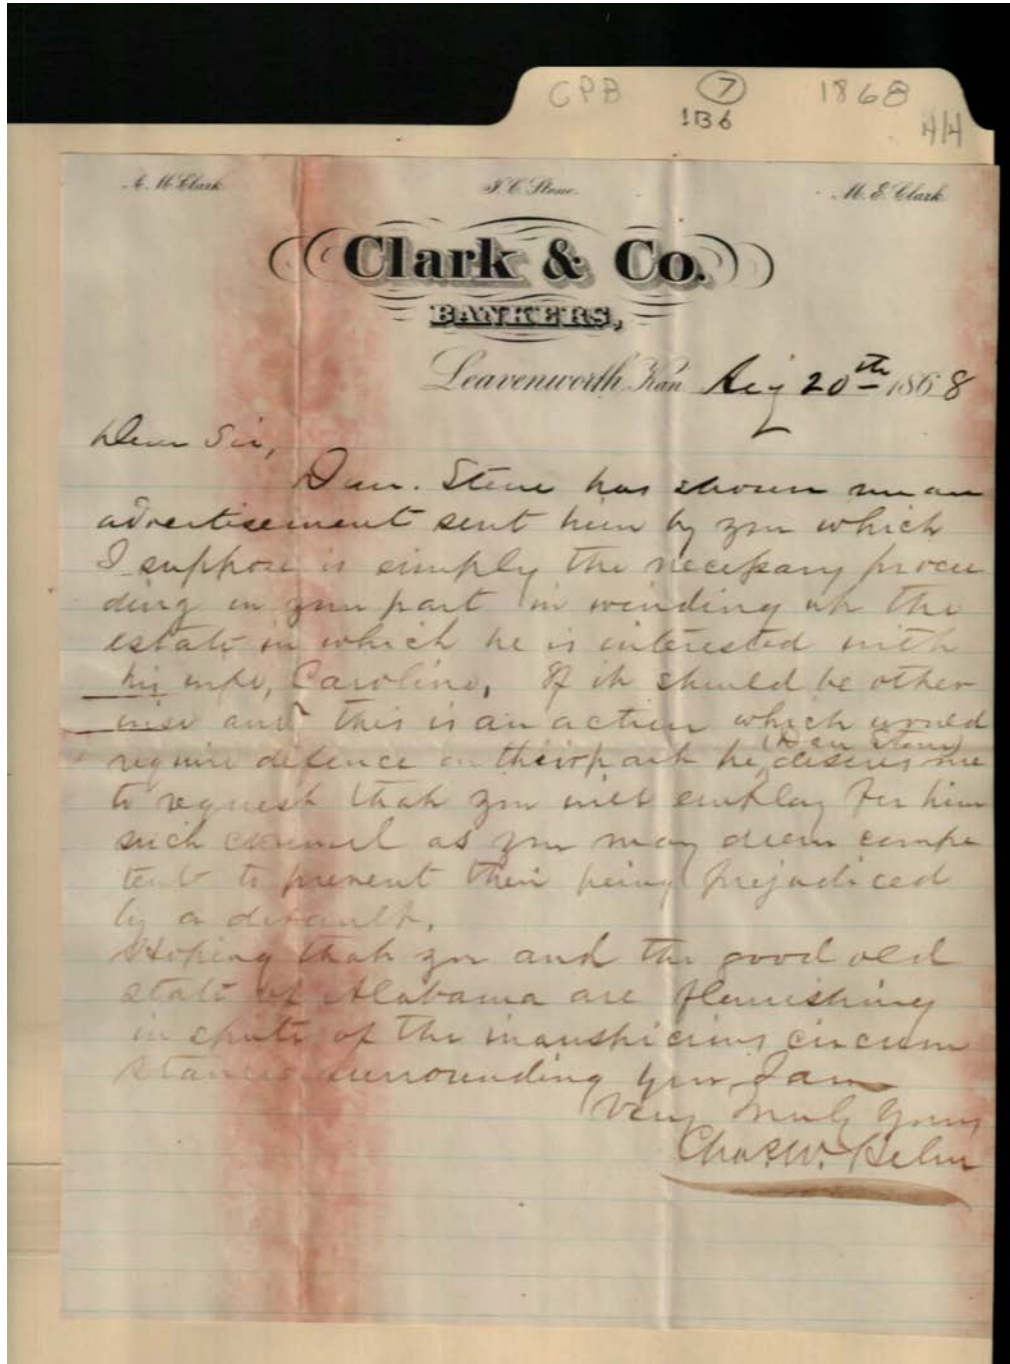 CPB 7 1868
1B6
H/H
A. M. Clark J. C. Stone. M. E. Clark
Clark & Co.
BANKERS,
Leavenworth, Kan Aug 20th 1868
Dear Sir,
Dan. Stone has shown me an
advertisement sent him by you which
I suppose is simply the necessary procee
ding on your part in winding up the
estate in which he is interested with
his wife, Caroline, If it should be other
wise and this is an action which would
require defence on their part he (Dan Stone) desires me
to request that you will employ for him
such counsel as you may deem compe
tent to prevent their being prejudiced
by a default.
Hoping that you and the good old
state of Alabama are flourishing
in spite of the inauspicious circum
stances surrounding you, I am
Very truly yours
Chas. W. Helm